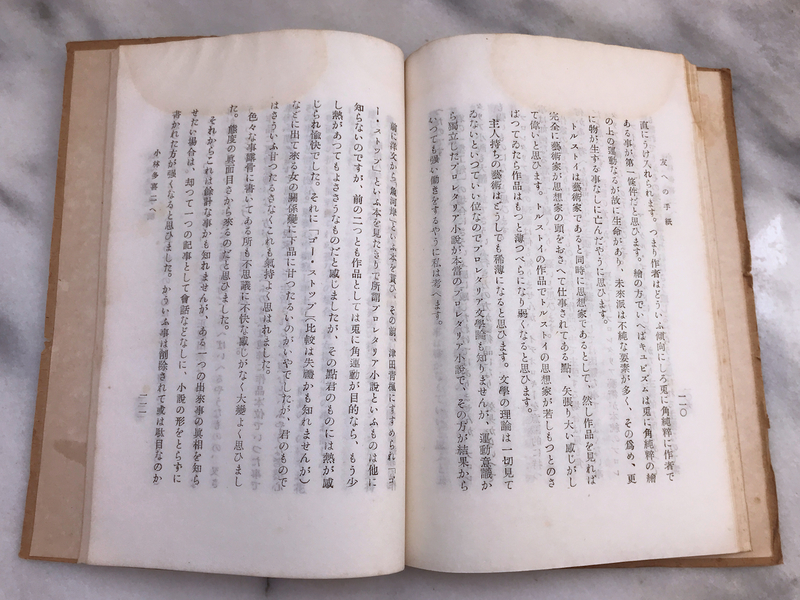 友への手紙
一一〇
直にうけ入れられます。つまり作者はどういふ傾向にしろ兎に角純粹に作者で
ある事が第一條件だと思ひます。繪の方でいへばキュビズムは兎に角純粹の繪
の上の運動なるが故に生命があり、未來派は不純な要素が多く、その爲め、更
に物が生ずる事なしに亡んだやうに思ひます。
トルストイは藝術家であると同時に思想家であるとして、然し作品を見れば
完全に藝術家が思想家の頭をおさへて仕事されてある點、矢張り大い感じがし
て偉いと思ひます。トルストイの作品でトルストイの思想家が若しもつとのさ
ばつてゐたら作品はもつと薄つぺらになり弱くなると思ひます。
主人持ちの藝術はどうしても稀薄になると思ひます。文學の理論は一切見て
ゐないといつていゝ位なのでプロレタリア文學論も知りませんが、運動意識か
ら獨立したプロレタリア小説が本當のプロレタリア小説で、その方が結果から
いつても強い働きをするやうに私は考へます。
といふ本を貰ひ、その前、津田青楓にすすめられ「ゴ
ー・ストップ」といふ本を見たきりで所謂プロレタリア小説といふものは他に
知らないのですが、前の二つとも作品としては兎に角運動が目的なら、もう少
し熱があつてもよささうなものだと感じましたが、その點君のものには熱が感
じられ愉快でした。それに「ゴー・ストップ」(比較は失禮かも知れませんが)
などに出て來る女の關係變に下品に甘つたるいのがいやでしたが、君のもので
はさういふ甘つたるさなくこれも氣持よく思はれました。
色々な事露骨に書いてある所も不思議に不快な感じがなく大變よく思ひまし
た。態度の眞面目さから來るのだと思ひました。
それからこれは餘計な事かも知れませんが、ある一つの出來事の眞相を知ら
せたい場合は、却つて一つの記事として會話などなしに、小説の形をとらずに
書かれた方が強くなると思ひました。かういふ事は削除されて或は駄目なのか
小林多喜二へ
一一一